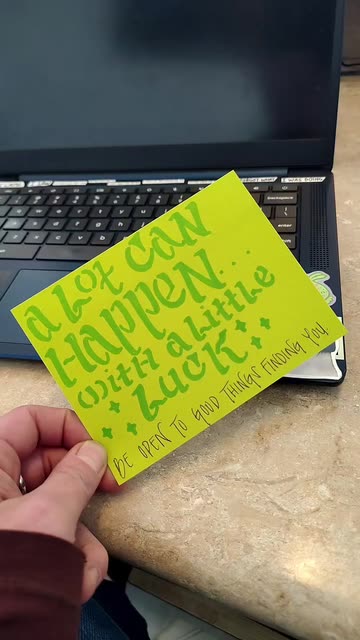 a Lot CAN
HAPPEN...
With a Little
LUCK.
BE OPEN TO GOOD THINGS FINDING YOU.
I WAS DOING
Backspace